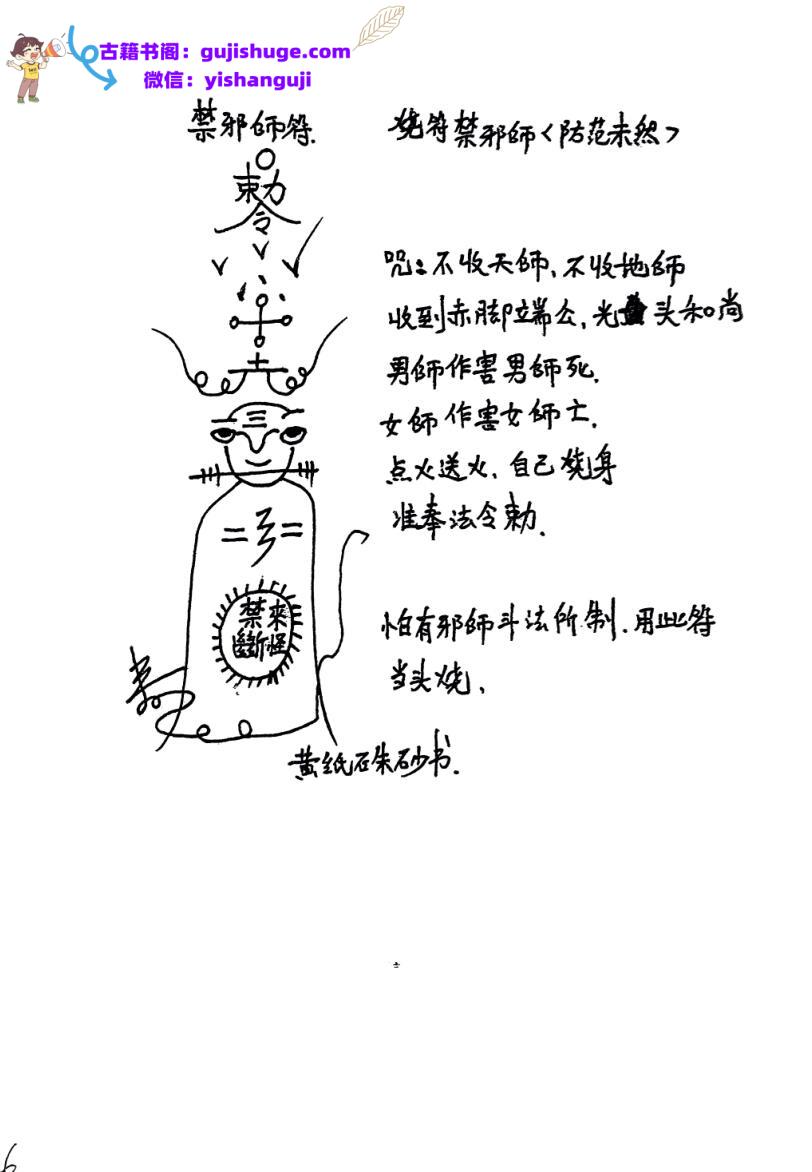 古籍书阁：gujishuge.com
微信：yishanguji
禁邪師符.
烧符禁邪師＜防范未然＞
敕令
咒：不收天師、不收地師
收到赤脚端公，光头和尚
男師作害男師死.
女師作害女師亡.
点火送火、自己烧身
准奉法令敕.
禁來
斷怪
怕有邪師斗法所制.用此符
当头烧、
黄纸石朱砂书.
6